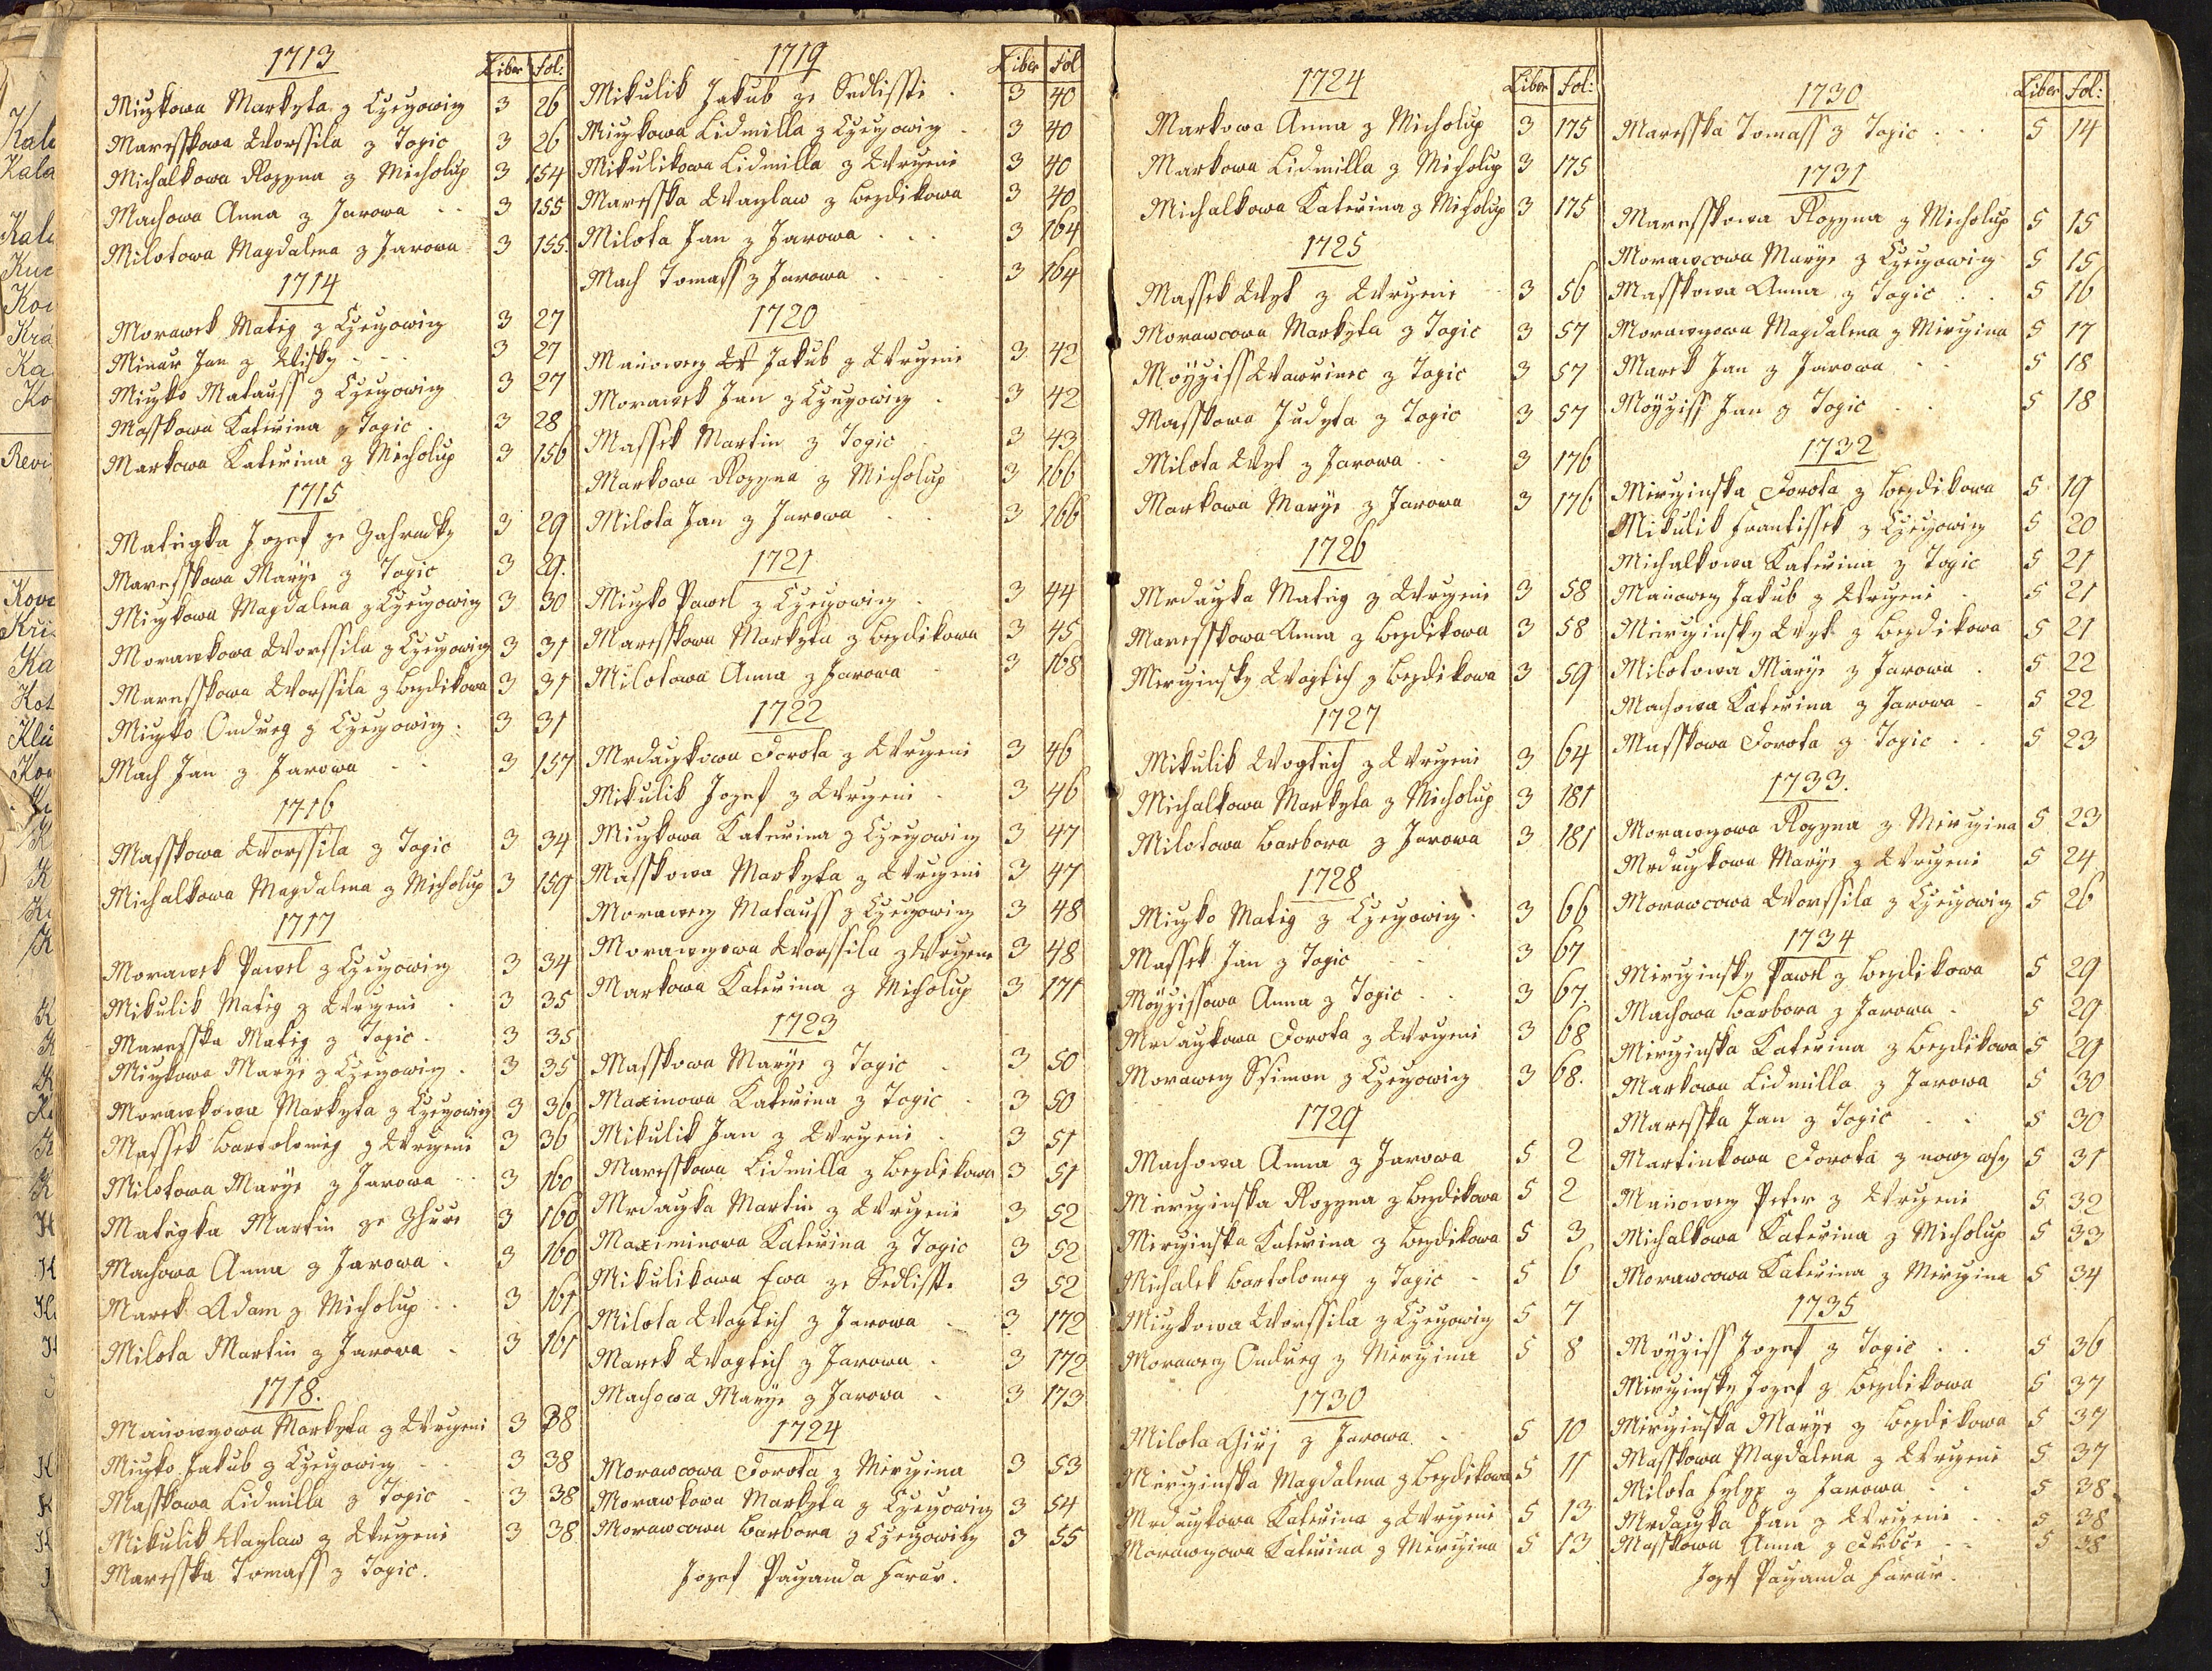 1713
Liber fol:
Miczkowa Markyta z Czeczowicz 3 26
Maresskowa Worssila z Togic 3 26
Michalkowa Rozyna z Micholup 3 154
Machowa Anna z Jarowa 3 155
Milotowa Magdalena z Jarowa 3 155.
1714
Morawek Matieg z Czeczowicz 3 27
Minar Jan z Wisky 3 27
Miczko Matauss z Czeczowicz 3 27
Masskowa Katerina z Togic 3 28
Markowa Katerina z Micholup 3 156
1715
Matiegka Jozef ze Zahradky 3 29
Maresskowa Marye z Togic 3 29.
Miczkowa Magdalena z Czeczowicz 3 30
Morawkowa Worssila z Czeczowicz 3 31
Maresskowa Worssila z Bezdikowa 3 31
Miczko Ondreg z Czeczowicz 3 31
Mach Jan z Jarowa 3 157
1716
Masskowa Worssila z Togic 3 34
Michalkowa Magdalena z Micholup 3 159
1717
Morawek Pawel z Czeczowicz 3 34
Mikulik Matieg z Wryeni 3 35
Maresska Matieg z Togic 3 35
Miczkowa Marye z Czeczowicz 3 35
Morawkowa Markyta z Czeczowicz 3 36
Massek Bartolomieg z Wryeni 3 36
Milotowa Marye z Jarowa 3 160
Matiegka Martin ze Zhure 3 160
Machowa Anna z Jarowa 3 160
Marek Adam z Micholup 3 161
Milota Martin z Jarowa 3 161
1718.
Manowczowa Markyta z Wryeni 3 38
Miczko Jakub z Czeczowicz 3 38
Masskowa Lidmilla z Togic 3 38
Mikulik Waczlaw z Wryeni 3 38
Maresska Tomass z Togic.
1719
Liber fol
Mikulik Jakub ze Sedlisste 3 40
Miczkowa Lidmilla z Czeczowicz 3 40
Mikulikowa Lidmilla z Wryeni 3 40
Maresska Waczlaw z Bezdikowa 3 40
Milota Jan z Jarowa 3 164
Mach Tomass z Jarowa 3 164
1720
Manowecz Jakub z Wryeni 3 42
Morawek Jan z Czeczowicz 3 42
Massek Martin z Togic 3 43
Markowa Rozyna z Micholup 3 166
Milota Jan z Jarowa 3 166
1721
Miczko Pawel z Czeczowicz 3 44
Maresskowa Markyta z Bezdikowa 3 45
Milotowa Anna z Jarowa 3 168
1722
Mrdaczkowa Dorota z Wryeni 3 46
Mikulik Jozef z Wryeni 3 46
Miczkowa Katerina z Czeczowicz 3 47
Masskowa Markyta z Wryeni 3 47
Morawecz Matauss z Czeczowicz 3 48
Morawczowa Worssila z Wryeni 3 48
Markowa Katerina z Micholup 3 171
1723
Masskowa Marye z Togic 3 50
Maxinowa Katerina z Togic 3 50
Mikulik Jan z Wryeni 3 51
Maresskowa Lidmilla z Bezdikowa 3 51
Mrdaczka Martin z Wryeni 3 52
Maximinowa Katerina z Togic 3 52
Mikulikowa Ewa ze Sedlisste 3 52
Milota Wogtich z Jarowa 3 172
Marek Wogtich z Jarowa 3 172
Machowa Marye z Jarowa 3 173
1724
Morawcowa Dorota z Mirczina 3 53
Morawkowa Markyta z Czeczowicz 3 54
Morawcowa Barbora z Czeczowicz 3 55
Jozef Paczanda Farar.
1724
Liber fol:
Markowa Anna z Micholup 3 175
Markowa Lidmilla z Micholup 3 175
Michalkowa Katerina z Micholup 3 175
1725
Massek Wyt z Wryeni 3 56
Morawcowa Markyta z Togic 3 57
Moyziss Wawrinec z Togic 3 57
Masskowa Judyta z Togic 3 57
Milota Wyt z Jarowa 3 176
Markowa Marye z Jarowa 3 176
1726
Mrdaczka Matieg z Wryeni 3 58
Maresskowa Anna z Bezdikowa 3 58
Mirczinsky Wogtich z Bezdikowa 3 59
1727
Mikulik Wogtich z Wryeni 3 64
Michalkowa Markyta z Micholup 3 181
Milotowa Barbora z Jarowa 3 181
1728
Miczko Matieg z Czeczowicz 3 66
Massek Jan z Togic 3 67
Moyzissowa Anna z Togic 3 67.
Mrdaczkowa Dorota z Wryeni 3 68
Morawecz Ssimon z Czeczowicz 3 68.
1729
Machowa Anna z Jarowa 5 2
Mirczinska Rozyna z Bezdikowa 5 2
Mirczinska Katerina z Bezdikowa 5 3
Michalek Bartolomeg z Togic 5 6
Miczkowa Worssila z Czeczowicz 5 7
Morawecz Ondreg z Mirczina 5 8
1730
Milota Girj z Jarowa 5 10
Mirczinska Magdalena z Bezdikowa 5 11
Mrdaczkowa Katerina z Wryeni 5 13
Morawczowa Katerina z Mirczina 5 13
1730
Liber fol:
Maresska Tomass z Togic 5 14
1731
Maresskowa Rozyna z Micholup 5 15
Morawcowa Marye z Czeczowicz 5 15
Masskowa Anna z Togic 5 16
Morawczowa Magdalena z Mirczina 5 17
Marek Jan z Jarowa 5 18
Moyziss Jan z Togic 5 18
1732
Mirczinska Dorota z Bezdikowa 5 19
Mikulik Frantissek z Czeczowicz 5 20
Michalkowa Katerina z Togic 5 21
Manowecz Jakub z Wryeni 5 21
Mirczinsky Wyt z Bezdikowa 5 21
Milotowa Marye z Jarowa 5 22
Machowa Katerina z Jarowa 5 22
Masskowa Dorota z Togic 5 23
1733.
Morawczowa Rozyna z Mirczina 5 23
Mrdaczkowa Marye z Wryeni 5 24
Morawcowa Worssila z Czeczowicz 5 26
1734
Mirczinsky Pawel z Bezdikowa 5 29
Machowa Barbora z Jarowa 5 29
Mirczinska Katerina z Bezdikowa 5 29
Markowa Lidmilla z Jarowa 5 30
Maresska Jan z Togic 5 30
Martinkowa Dorota z nowy wsy 5 31
Manowecz Peter z Wryeni 5 32
Michalkowa Katerina z Micholup 5 33
Morawcowa Katerina z Mirczina 5 34
1735
Moyziss Jozef z Togic 5 36
Mirczinsky Jozef z Bezdikowa 5 37
Mirczinska Marye z Bezdikowa 5 37
Masskowa Magdalena z Wryeni 5 37
Milota Fylyp z Jarowa 5 38
Mrdaczka Jan z Wryeni 5 38
Masskowa Anna z 5 38
Jozef Paczanda Farar.